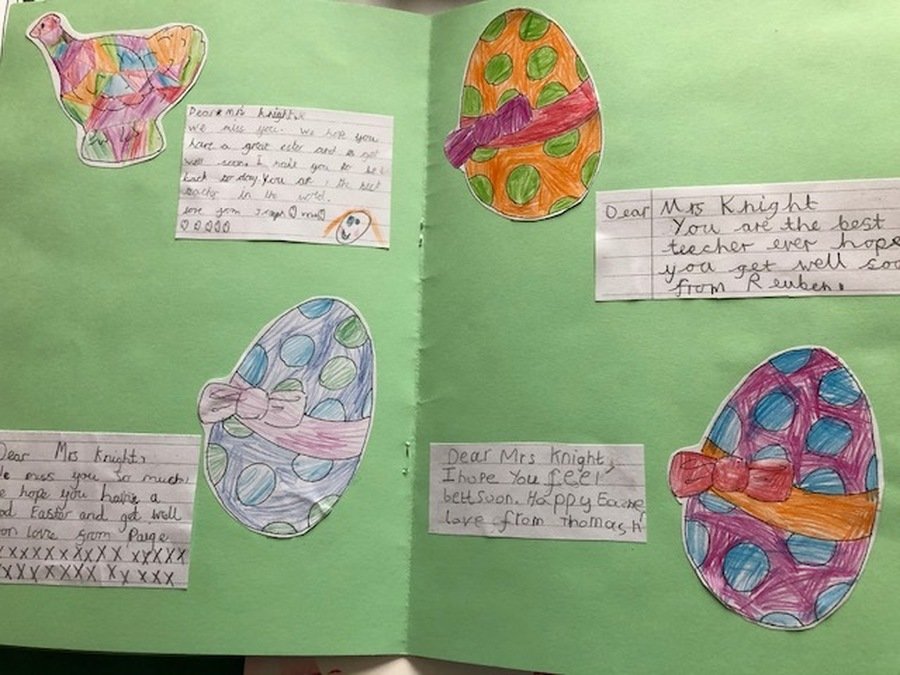 Dear Mrs Knight,
We miss you. We hope you
have a great and get
well soon. I you to be
back to day. You are the best
in the world.
love from
Dear Mrs Knight
You are the best
teecher ever hope
you get well soo
from Reuben.
Dear Mrs Knight,
e miss you so much,
e hope you have a
od Easter and get well
oon love from Paige
Dear Mrs Knight,
I hope You feel
bett soon. Happy Easte
love from Thomas H